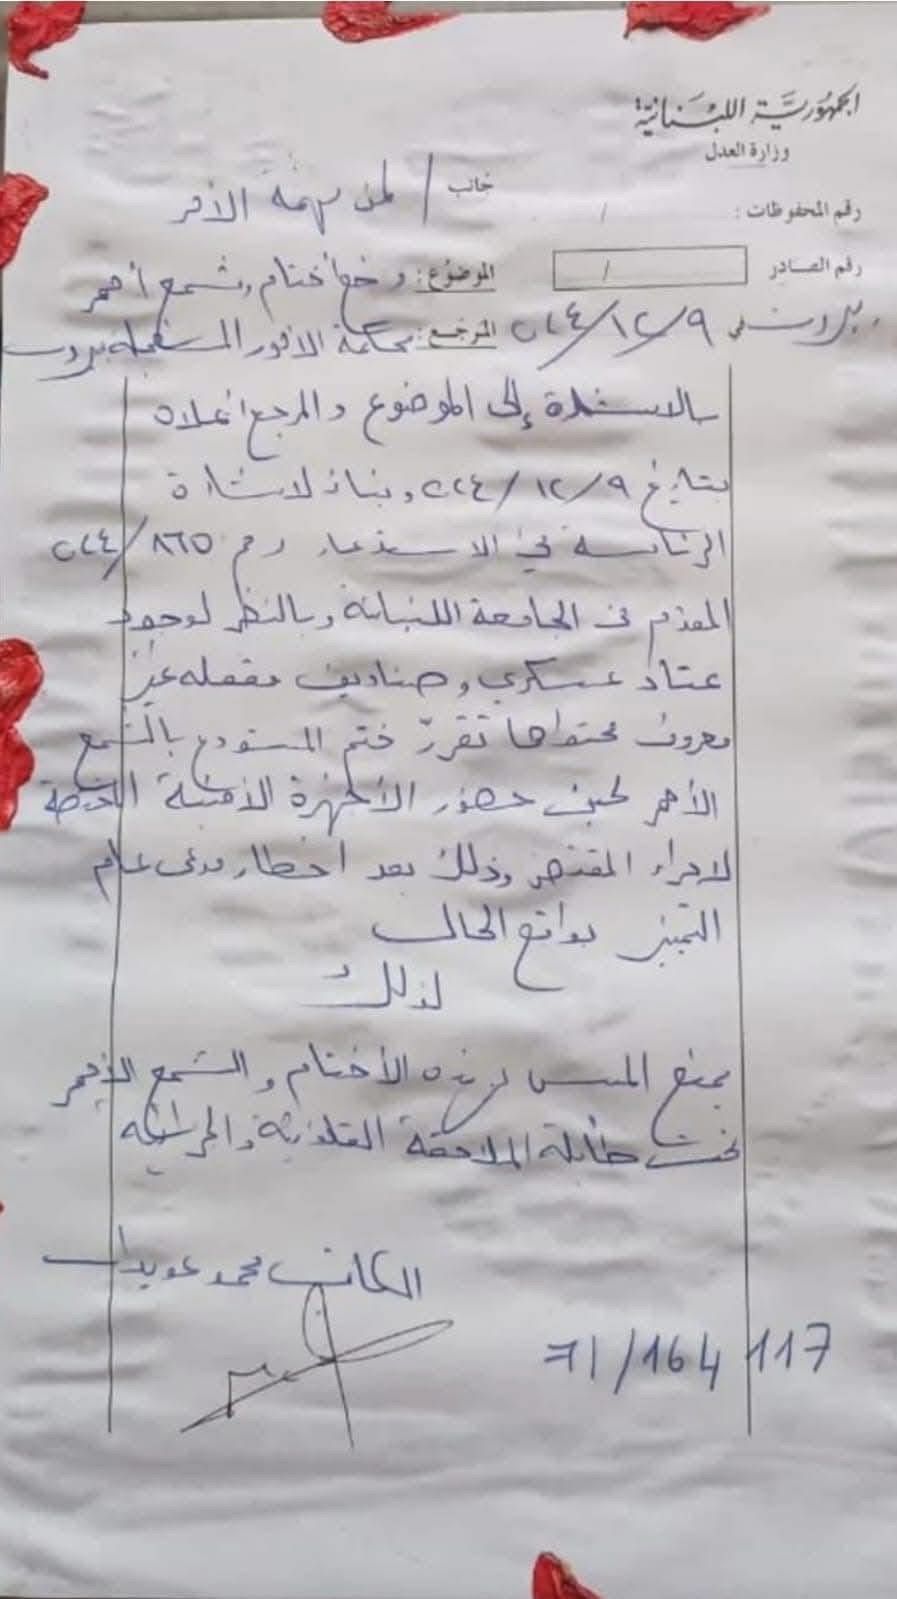 الجمهورية اللبنانية
وزارة العدل
رقم المحفوظات : /
جانب / لمن يهمه الأمر
رقم الصادر /
الموضوع : وضع أختام وشمع أحمر
بيروت في ٢٠٢٤/١٢/٩
المرجع : محكمة الأمور المستعجلة بيروت
بالاستناد إلى الموضوع والمرجع أعلاه
بتاريخ ٢٠٢٤/١٢/٩ وبناءً لإشارة
الرئاسة في الاستدعاء رقم ٢٠٢٤/٨٦٥
المقدم من الجامعة اللبنانية وبالنظر لوجود
عتاد عسكري وصناديق مقفلة غير
معروف محتواها تقرر ختم المستودع بالشمع
الأحمر لحين حضور الأجهزة الأمنية المختصة
لإجراء المقتضى وذلك بعد اخطار مدعي عام
التمييز بواقع الحال
لذلك
يمنع المس بهذه الأختام والشمع الأحمر
تحت طائلة الملاحقة القانونية والجزائية
الكاتب محمد عويدات
71/164 117